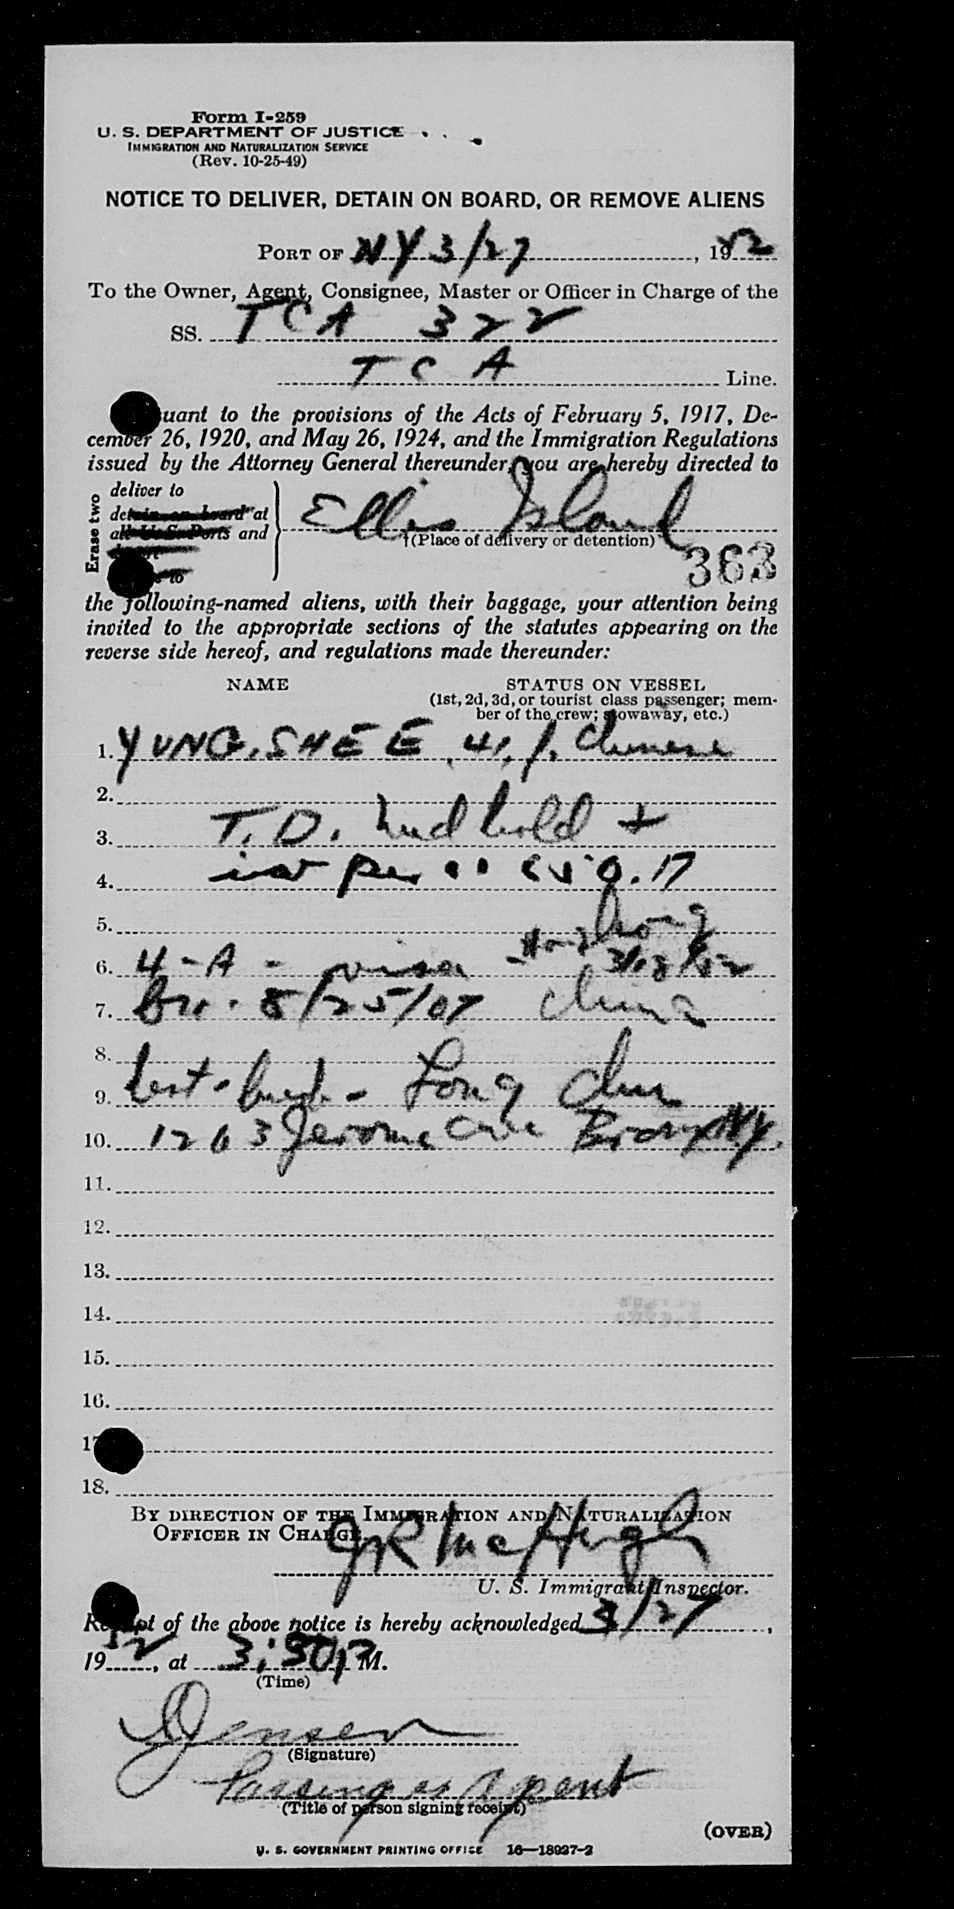 Form I-259
U. S. DEPARTMENT OF JUSTICE
IMMIGRATION AND NATURALIZATION SERVICE
(Rev. 10-25-49)
NOTICE TO DELIVER, DETAIN ON BOARD, OR REMOVE ALIENS
PORT OF NY 3/27, 1952
To the Owner, Agent, Consignee, Master or Officer in Charge of the
SS. TCA 322
TCA Line.
uant to the provisions of the Acts of February 5, 1917, De-
cember 26, 1920, and May 26, 1924, and the Immigration Regulations
issued by the Attorney General thereunder, you are hereby directed to
Erase two
deliver to
detain on board at
all U.S. Ports and
Ellis Island
(Place of delivery or detention)
to
363
the following-named aliens, with their baggage, your attention being
invited to the appropriate sections of the statutes appearing on the
reverse side hereof, and regulations made thereunder:
NAME STATUS ON VESSEL
(1st, 2d, 3d, or tourist class passenger; mem-
ber of the crew; stowaway, etc.)
1. YUNG, SHEE, 41, f. Chinese
2.
3. T.D. hold +
4. per
5.
6. 4-A - visa Hong Kong
7. 8/25/07 China
8.
9. Long
10. 1263 Jerome Ave Bronx NY.
11.
12.
13.
14.
15.
16.
17
18.
BY DIRECTION OF THE IMMIGRATION AND NATURALIZATION
OFFICER IN CHARGE
JR McHugh
U. S. Immigrant Inspector.
Receipt of the above notice is hereby acknowledged 3/27,
1952, at 3:50 P M.
(Time)
Jensen
(Signature)
Passenger Agent
(Title of person signing receipt)
(OVER)
U. S. GOVERNMENT PRINTING OFFICE 16—18927-2